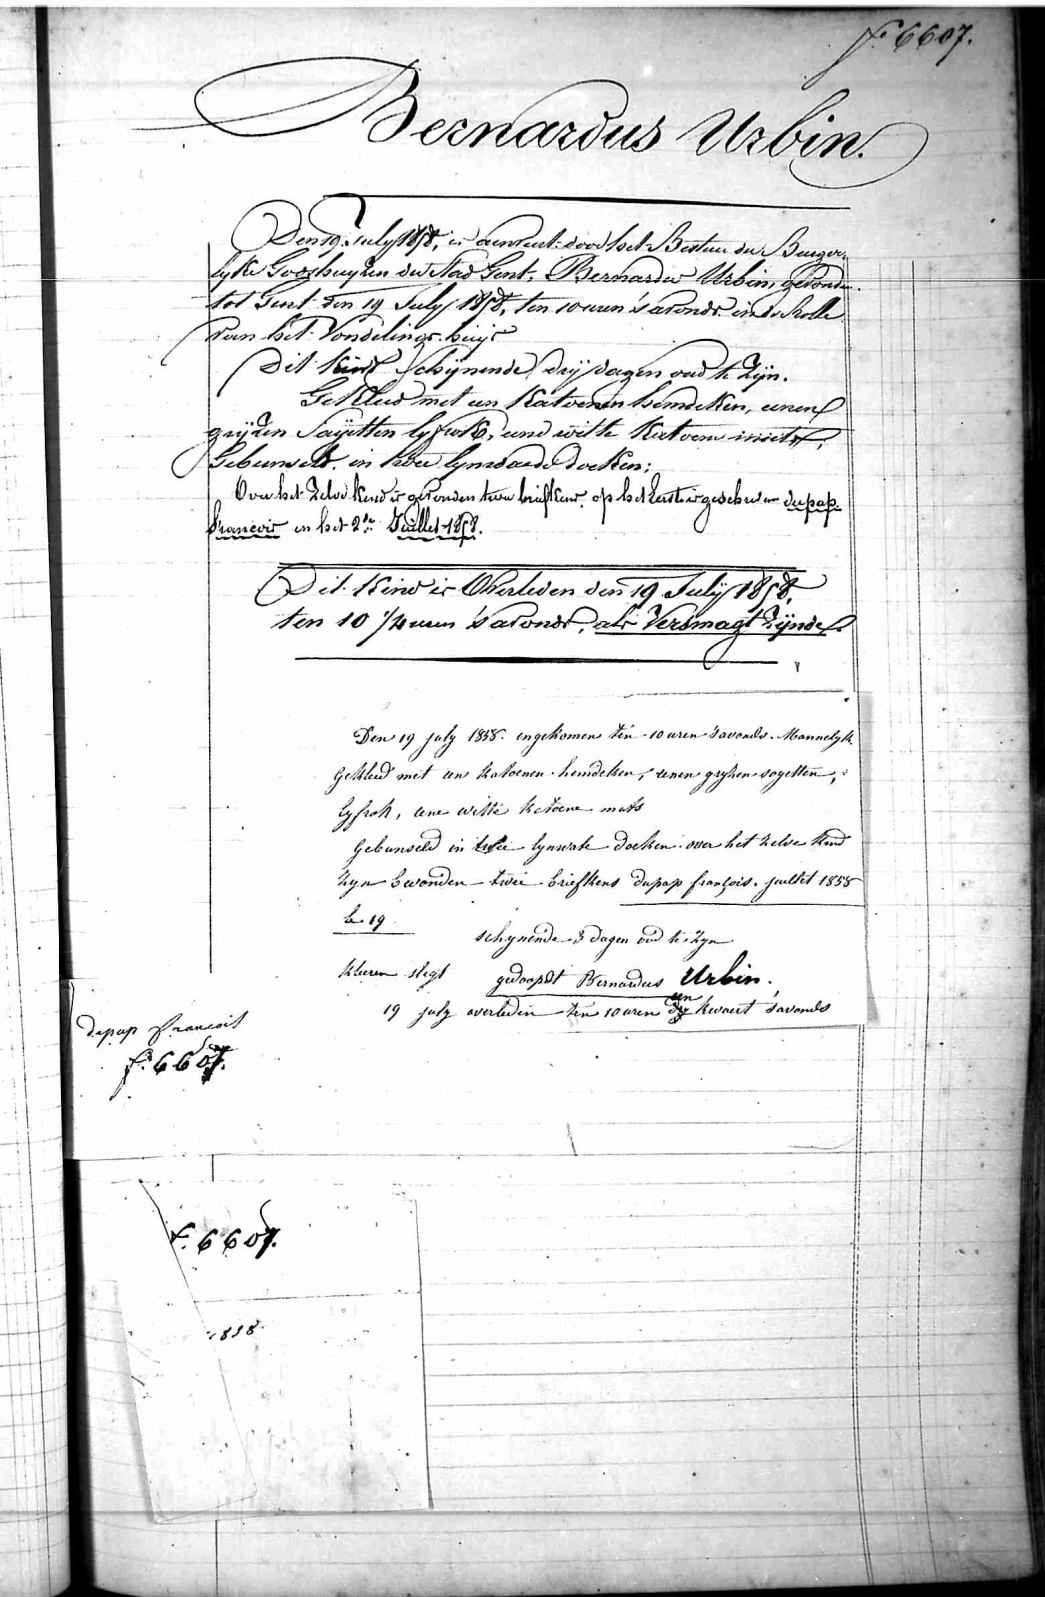 f. 6607.
Bernardus Urbin.
Den 19. July 1858, is aenveert door het Bestuer der Burger-
lyke Godshuyzen der Stad Gent, Bernardus Urbin, gevonden
tot Gent den 19 July 1858, ten 10 uren 's avonds in de Rolle
van het Vondelings-huys
Dit Kind schijnende drij dagen oud te Zijn.
Gekleed met een Katoenen hemdeken, eenen
grijzen Sayetten lyfrok, eene witte Katoene muts,
Gebunseld in twee lynwaede doeken;
Over het Zelve Kind is gevonden twee briefkens, op het eerste is geschreven dupap
francois en het 2de Juillet 1858.
Dit Kind is Overleden den 19 July 1858,
ten 10 1/4 uren 's avonds, als Versmagt Zijnde.
Den 19 july 1858. ingekomen ten 10 uren s'avonds. Mannelyk
Gekleed met een katoenen hemdeken, eenen gryzen sayetten,
lyfrok, eene witte katoene muts
Gebunseld in twee lynwate doeken over het zelve kind
zyn bevonden twee briefkens dupap françois. juillet 1858
le 19
schynende 3 dagen oud te zyn
kleeren slegt gedoopt Bernardus Urbin,
19 july overleden ten 10 uren een kwaert s'avonds
dupap francois
f. 6607.
f. 6607.
1858.